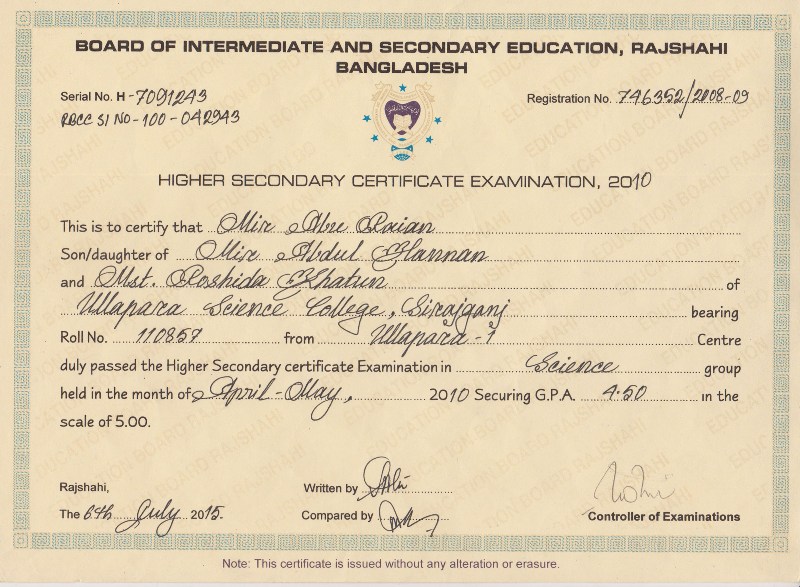 BOARD OF INTERMEDIATE AND SECONDARY EDUCATION, RAJSHAHI
BANGLADESH
Serial No. H-7091243
Registration No. 746352/2008-09
RBCC Sl No-100-042943
HIGHER SECONDARY CERTIFICATE EXAMINATION, 2010
This is to certify that Mir Abu Raian
Son/daughter of Mir Abdul Hannan
and Mst. Roshida Khatun of
Ullapara Science College, Sirajganj bearing
Roll No. 110857 from Ullapara-1 Centre
duly passed the Higher Secondary certificate Examination in Science group
held in the month of April-May, 2010 Securing G.P.A. 4.50 in the
scale of 5.00.
Rajshahi,
Written by
The 6th July 2015.
Compared by
Controller of Examinations
Note: This certificate is issued without any alteration or erasure.